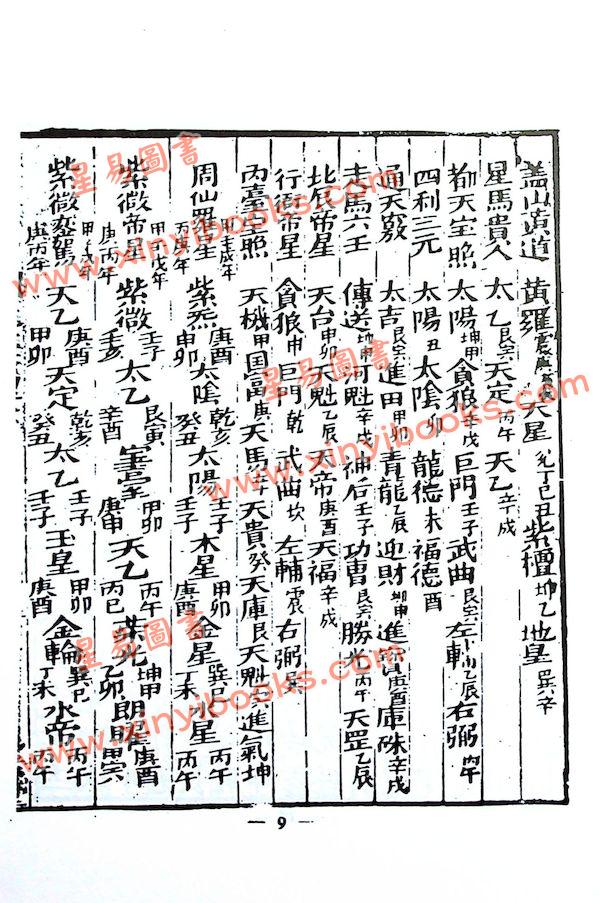 盖山黄道 黄羅 天星 兑丁巳丑 紫檀 坤乙 地皇 巽辛
星馬貴人 太乙 艮亥 天定 丙午 天乙 辛戌
都天宝照 太陽 坤甲 貪狼 辛戌 巨門 壬子 武曲 左輔 乙辰 右弼 丙午
四利三元 太陽 丑 太陰 卯 龍德 未 福德 酉
通天竅 太吉 艮亥 進田 甲卯 青龍 乙辰 迎財 坤申 進寶 庚酉 庫硃 辛戌
走馬六壬 傳送 坤申 河魁 辛戌 神后 壬子 功曹 勝光 丙午 天罡 乙辰
北辰帝星 天台 申卯 天魁 乙辰 天帝 庚酉 天福 辛戌
行衙帝星 貪狼 申 巨門 乾 武曲 坎 左輔 震 右弼
丙臺百照 天機 甲 国富 庚 天馬 壬 天貴 癸 天庫 艮 天魁 進氣 坤
周仙羅星 丙庚年 紫炁 庚酉 申卯 太陰 乾亥 癸丑 太陽 壬子 壬子 木星 甲卯 庚酉 金星 巽巳 丁未 水星 丙午 丙午
紫微帝星 庚丙年 紫微 壬子 壬亥 太乙 艮寅 辛酉 甲卯 庚申 天乙 丙午 丙巳 坤甲 乙卯 朗曜 庚酉
紫微鸞駕 庚丙年 天乙 庚酉 甲卯 天定 乾亥 癸丑 太乙 壬子 壬子 玉皇 甲卯 庚酉 金輪 巽巳 丁未 水帝 丙午 丙午
— 9 —
星易圖書
www.xinyibooks.com
星易圖書
www.xinyibooks.com
星易圖書
www.xinyibooks.com